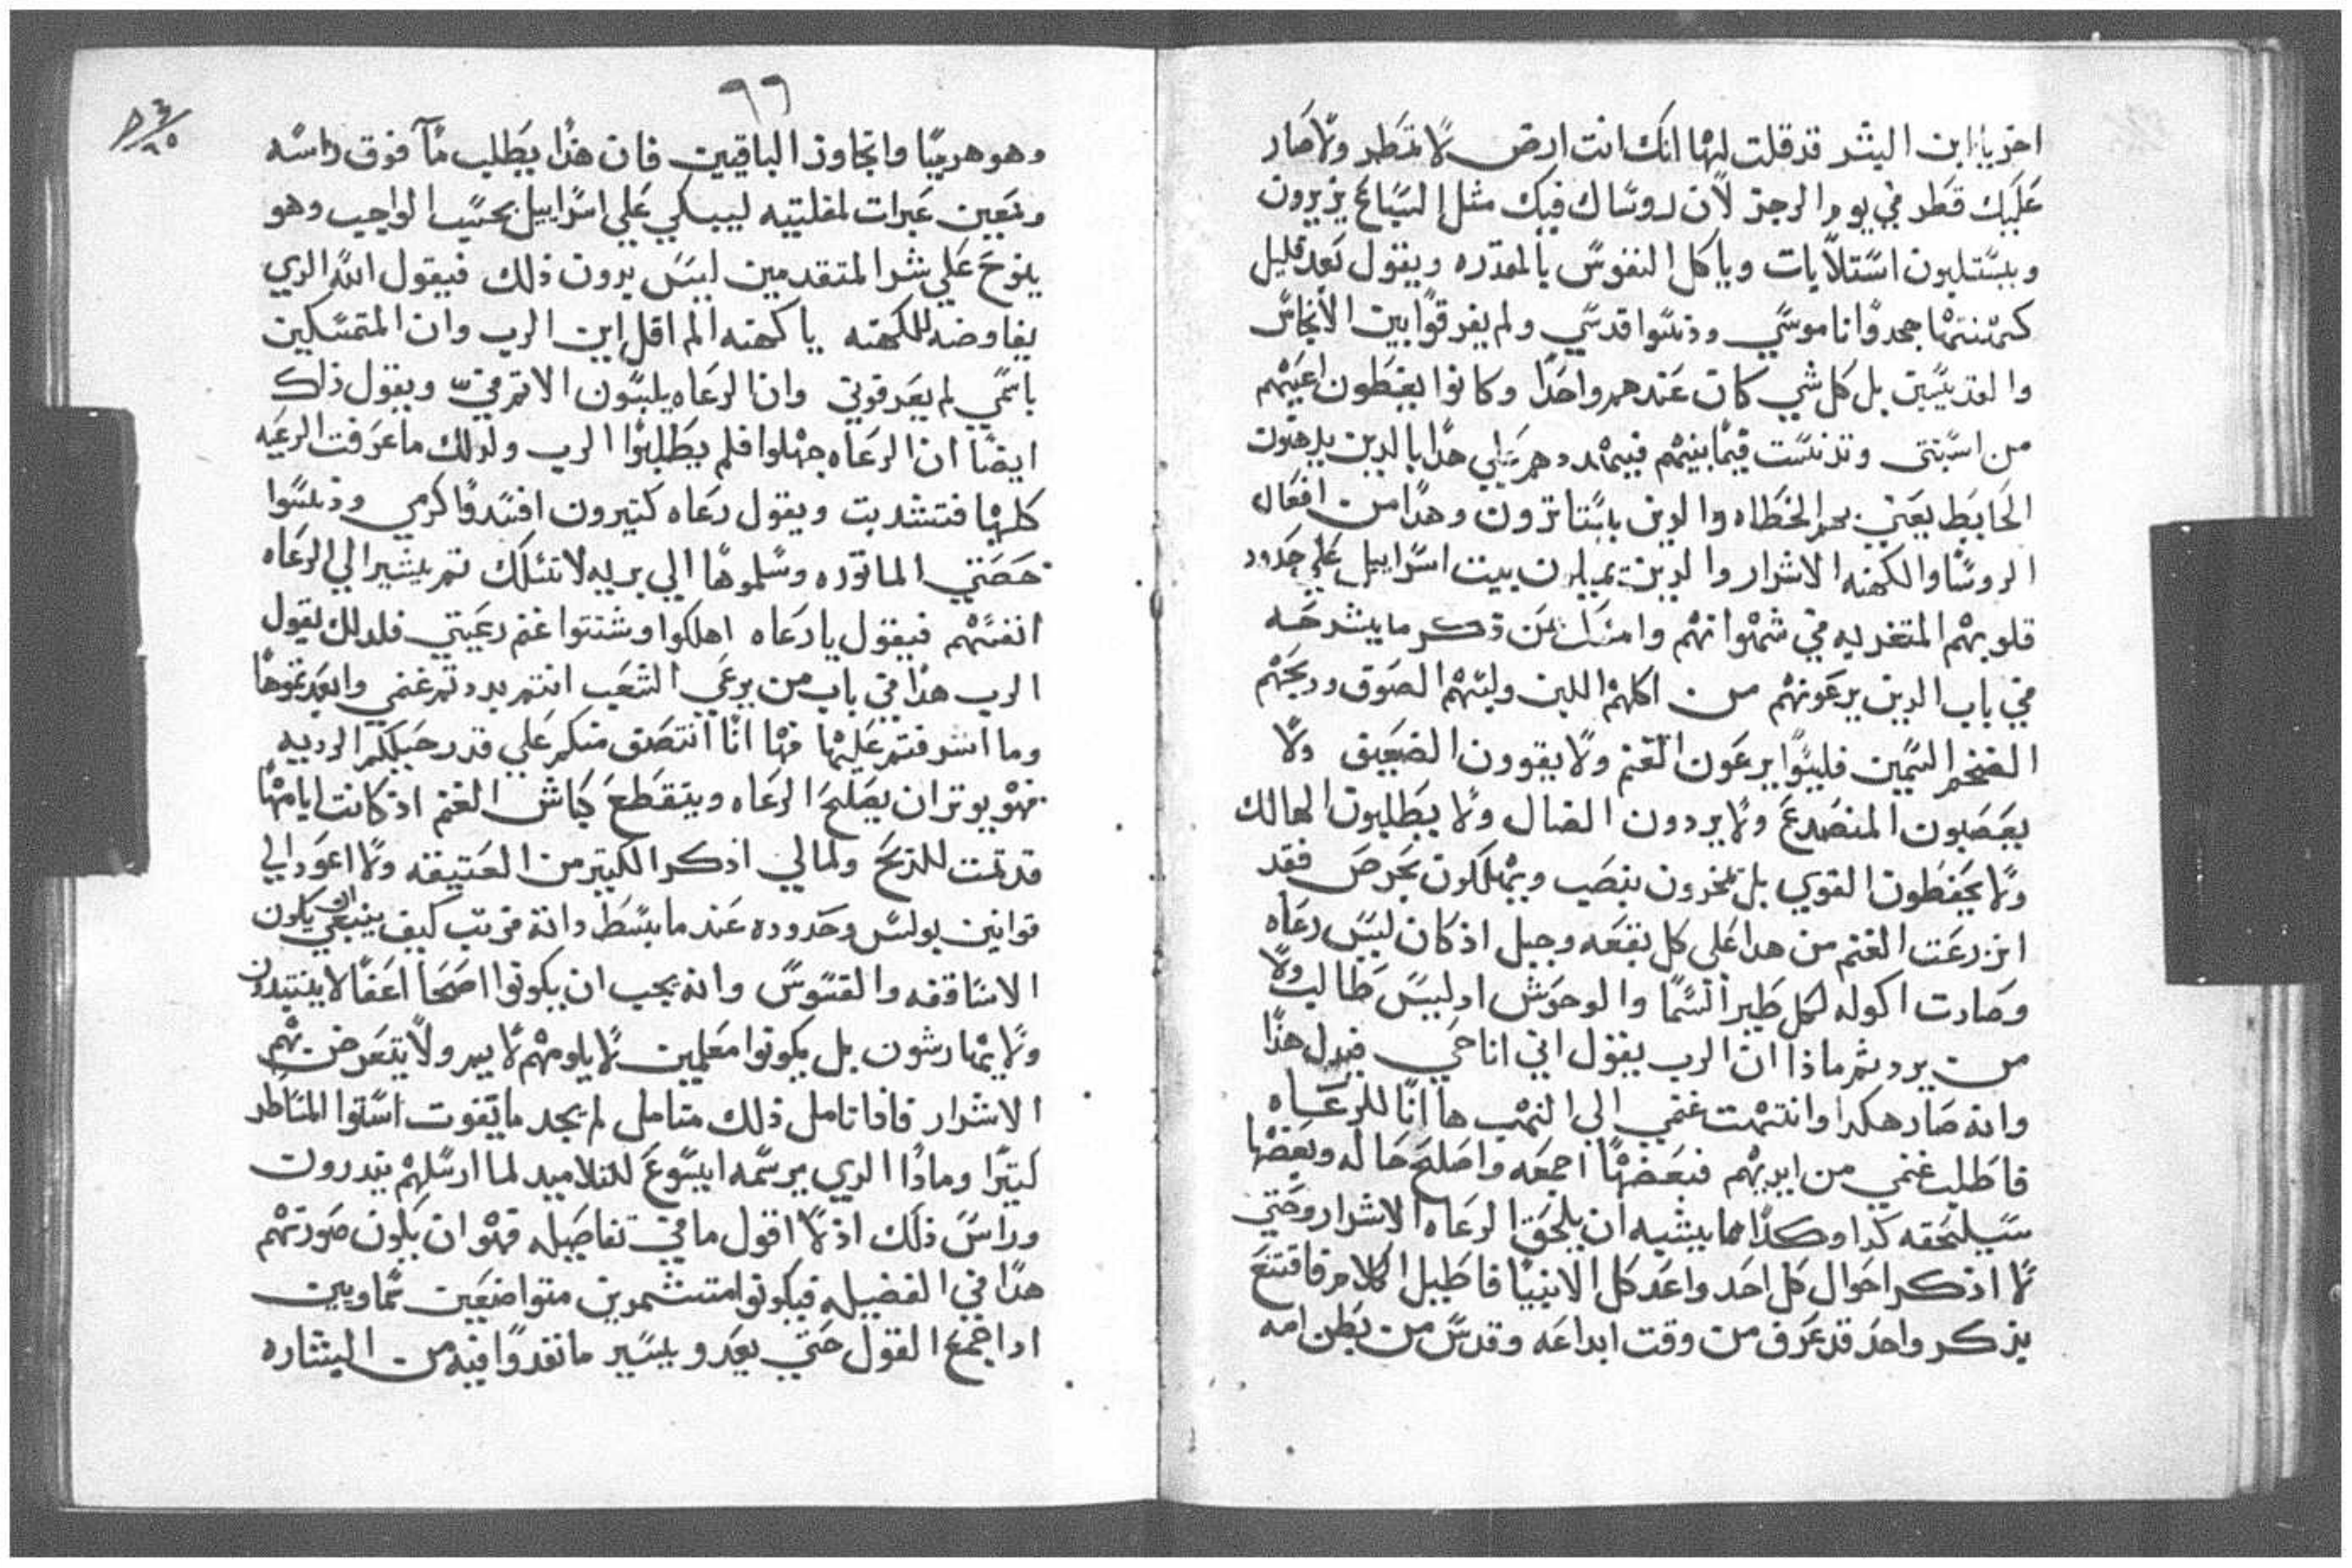 اخر يا ابن البشر قد قلت لها انك انت ارض لا تمطر ولا صار
عليك قطر في يوم الرجز لان روساك فيك مثل السباع يزيرون
ويستلبون استلابات وياكل النفوس بالمقدره ويقول بعد قليل
كهنتها جحدوا ناموسي ودنسوا قدسي ولم يفرقوا بين الانجاس
والقديسين بل كل شي كان عندهم واحدا وكانوا يغطون اعينهم
من اسبتي وتدنست فيما بينهم فيتهددهم علي هدا بالدين يدهنون
الحايط يعني بهم الخطاه والدين باستاترون وهدا من افعال
الروسا والكهنه الاشرار والدين يميلون بيت اسراييل علي حدود
قلوبهم المتغربه في شهواتهم وامسك عن دكر ما يشرحه
في باب الدين يرعونهم من اكلهم اللبن ولبسهم الصوف ودبحهم
الضخم السمين فليسوا يرعون الغنم ولا يقوون الضعيف ولا
يعصبون المنصدع ولا يردون الضال ولا يطلبون الهالك
ولا يحفظون القوي بل بنصب ويهلكون بحرص فقد
اندرعت الغنم من هدا علي كل بقعه وجبل اد كان ليس رعاه
وصارت اكوله لكل طير السما والوحوش اد ليس طالب ولا
من يرد ثم ماذا ان الرب يقول اني انا حي فبدل هذا
وانه صار هكدا وانتهت غنمي الي النهب ها انا للرعاه
فاطلب غنمي من ايديهم فبعضها اجمعه واصلح حاله وبعضها
سيلحقه كدا وكدا مما يشبه ان يلحق الرعاه الاشرار وحتي
لا ادكر احوال كل احد واعد كل الانبيا فاطيل الكلام فاقتنع
بذكر واحد قد عرف من وقت ابداعه وقدس من بطن امه
٦٦
وهو هرميا واتجاوز الباقين فان هذا يطلب مآ فوق راسه
وتعين عبرات لمقلتيه ليبكي علي اسراييل بحسب الواجب وهو
ينوح علي شر المتقدمين ليس بدون ذلك فيقول الله الدي
يفاوضه للكهنه يا كهنه الم اقل اين الرب وان المتمسكين
باسمي لم يعرفوني وان الرعاه يلبسون الاثم في ويقول ذلك
ايضا ان الرعاه جهلوا فلم يطلبوا الرب ولدلك ما عرفت الرعيه
كلها فتشدبت ويقول رعاه كتيرون افسدوا كرمي ودنسوا
حصتي الماتوره وسلموها الي بريه لا تسلك ثم يشير الي الرعاه
انفسهم فيقول يا رعاه اهلكوا وشتتوا غنم رعيتي فلدلك يقول
الرب هدا في باب من يرعي الشعب انتم بددتم غنمي وابعدتموها
وما اشرفتم عليها فها انا انتصف منكم علي قدر حيلكم الرديه
فهو يوثر ان يصلح الرعاه ويتقطع كباش الغنم اذ كانت ايامها
قد تمت للدبح ولمالي ادكر الكتير من العتيقه ولا اعود الي
قوانين بولس وحدوده عند ما بسط وانه قريب كيف ينبغي ان يكون
الاساقفه والقسوس وانه يجب ان يكونوا اصحا اعفا لا ينتبدون
ولا يهارشون بل يكونوا معلمين لا يلومهم لايم ولا يتعرض بهم
الاشرار فادا تامل ذلك متامل لم يجد ما تفوت استوا المناظر
كبيرا ومادا الدي يرسمه ايسوع للتلاميد لما ارسلهم يندرون
وراس ذلك اذ لا اقول ما في تفاصيله فهو ان يكون صورتهم
هدا في الفضيله فيكونوا متشمرين متواضعين سماويين
ادا جمع القول حتي يعدو يسير ما تقدوا فيه من البشاره